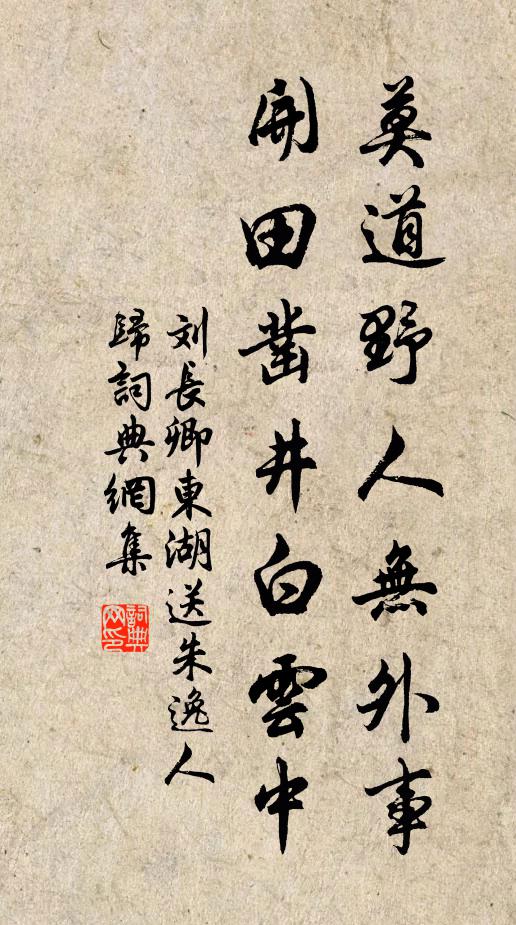 莫道野人無外事
開田凿井白雲中
刘長卿東湖送朱逸人
歸詞典網集
詞典
网印